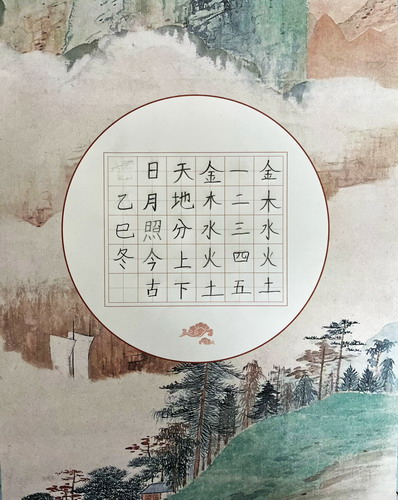 金木水火土
一二三四五
金木水火土
天地分上下
日月照今古
乙巳冬